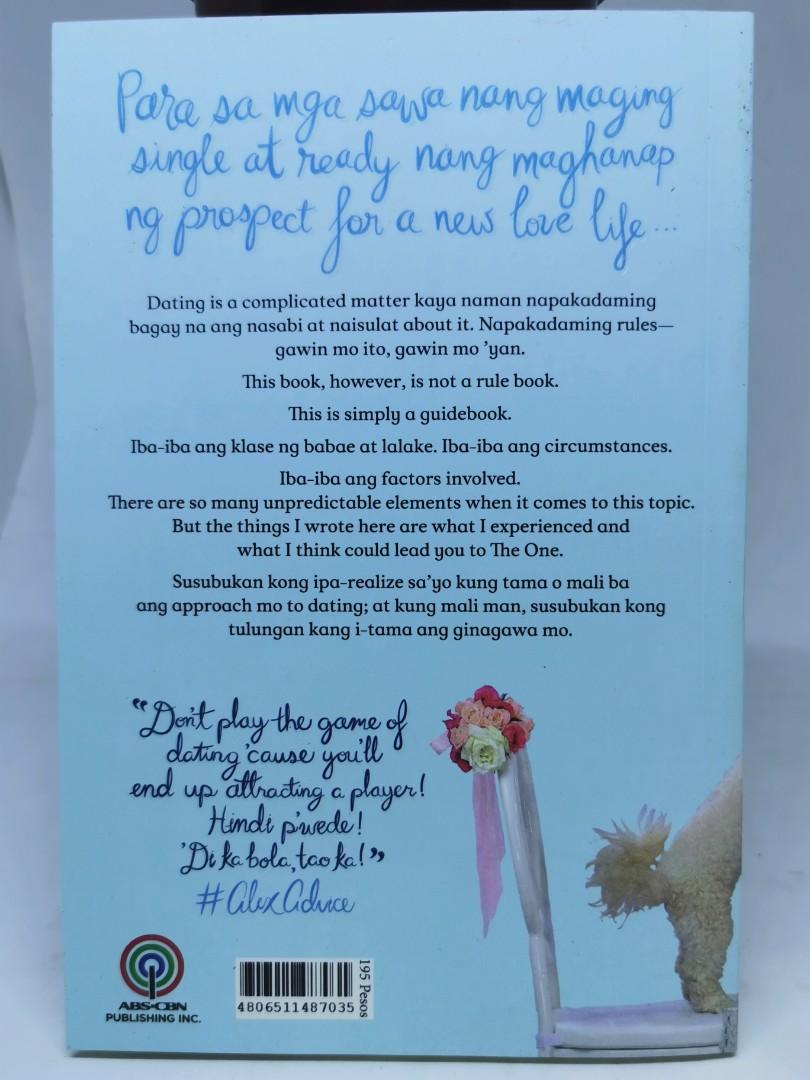 Para sa mga sawa nang maging
single at ready nang maghanap
ng prospect for a new love life...
Dating is a complicated matter kaya naman napakadaming
bagay na ang nasabi at naisulat about it. Napakadaming rules—
gawin mo ito, gawin mo 'yan.
This book, however, is not a rule book.
This is simply a guidebook.
Iba-iba ang klase ng babae at lalake. Iba-iba ang circumstances.
Iba-iba ang factors involved.
There are so many unpredictable elements when it comes to this topic.
But the things I wrote here are what I experienced and
what I think could lead you to The One.
Susubukan kong ipa-realize sa'yo kung tama o mali ba
ang approach mo to dating; at kung mali man, susubukan kong
tulungan kang i-tama ang ginagawa mo.
"Don't play the game of
dating 'cause you'll
end up attracting a player!
Hindi p'wede!
'Di ka bola, tao ka!"
#AlexAdvice
ABS-CBN
PUBLISHING INC.
4806511487035
195 Pesos